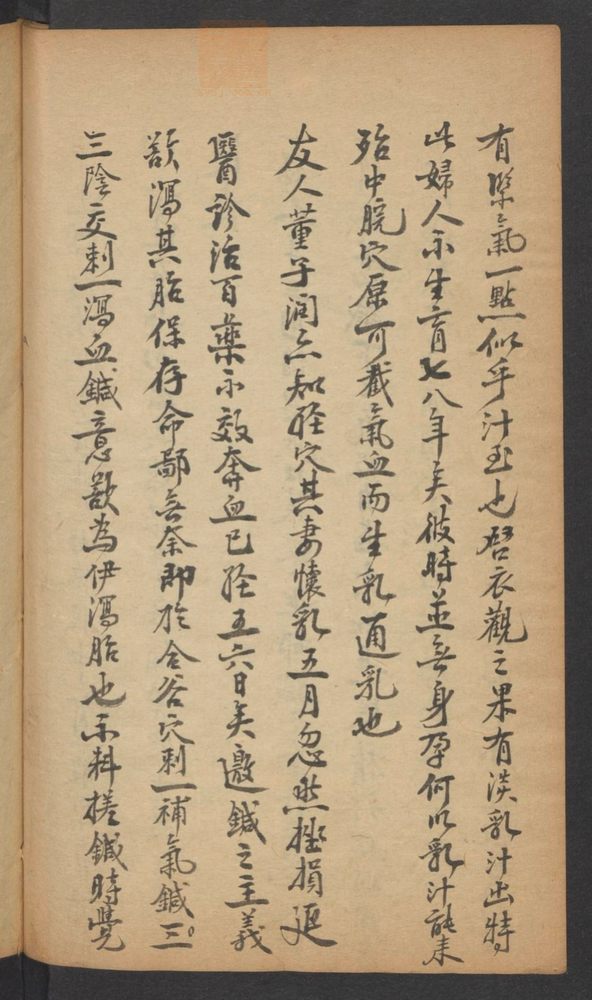 有驟氣一點似乎汁玉也啓衣觀之果有淡乳汁出特
此婦人不生育七八年矣彼時並無身孕何以乳汁能來
殆中脘穴原可截氣血而生乳通乳也
友人董子润亦知経穴其妻懷乳五月忽然挫損延
醫診治百藥不效奔血已経五六日矣邀鍼之主義
欲瀉其胎保存命鄙無奈即於合谷穴刺一補氣鍼三
三陰交刺一瀉血鍼意欲為伊瀉胎也不料搓鍼時覺